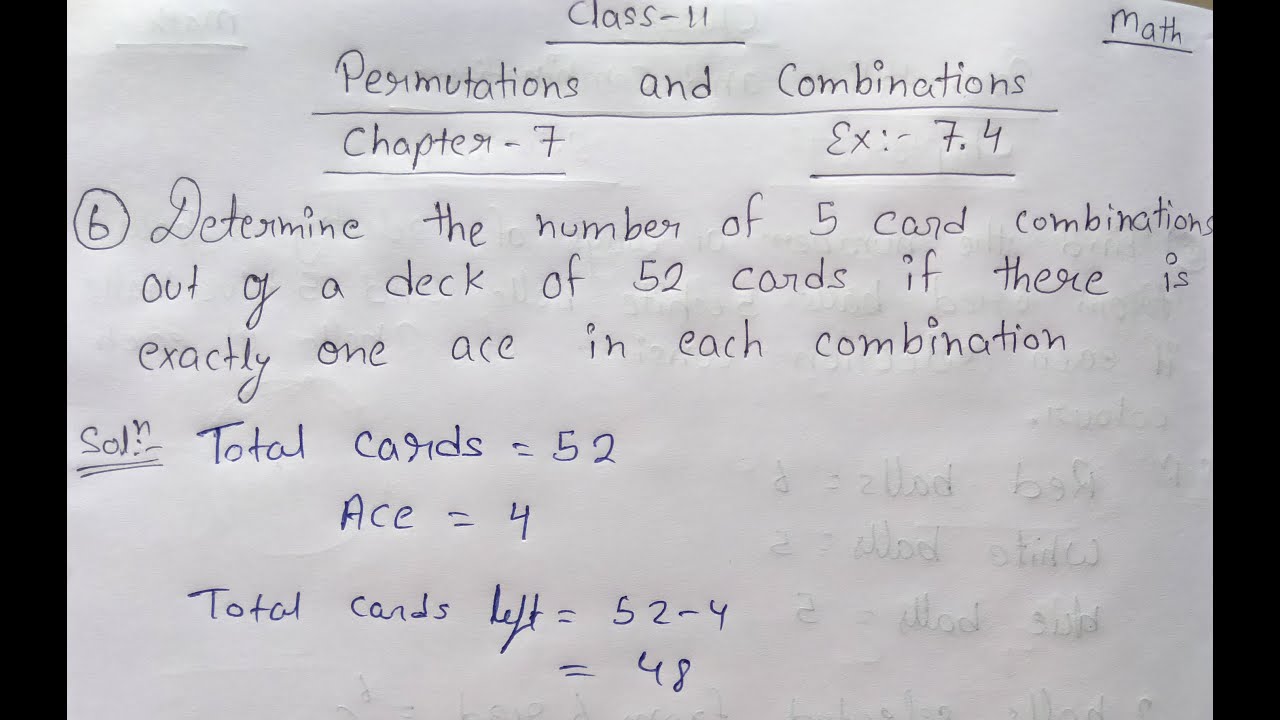 Class-11
Math
Permutations and Combinations
Chapter-7 Ex:- 7.4
6 Determine the number of 5 card combinations
out of a deck of 52 cards if there is
exactly one ace in each combination
Solⁿ:- Total cards = 52
Ace = 4
Total cards left = 52-4
= 48